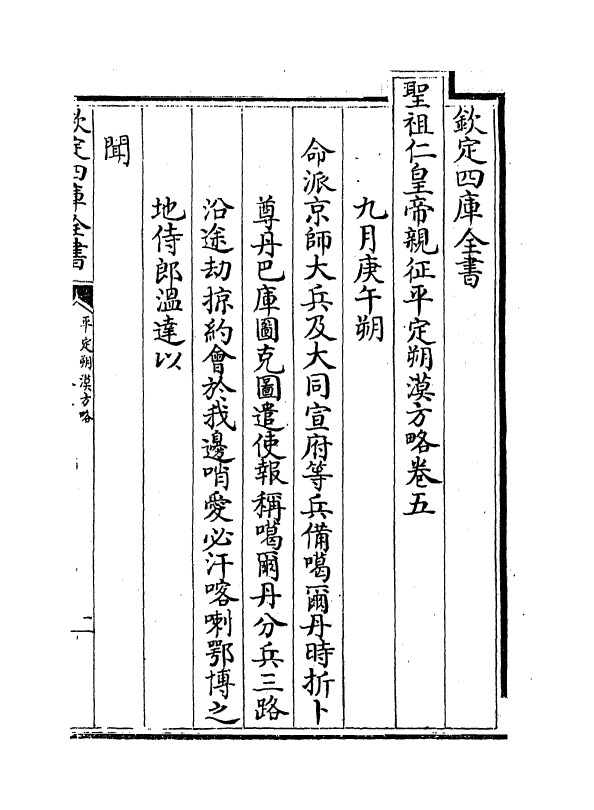 欽定四庫全書
聖祖仁皇帝親征平定朔漠方略卷五
九月庚午朔
命派京師大兵及大同宣府等兵備噶爾丹時折卜
尊丹巴庫圖克圖遣使報稱噶爾丹分兵三路
沿途劫掠約會於我邊哨愛必汗喀喇鄂博之
地侍郎溫達以
聞
欽定四庫全書
平定朔漠方略